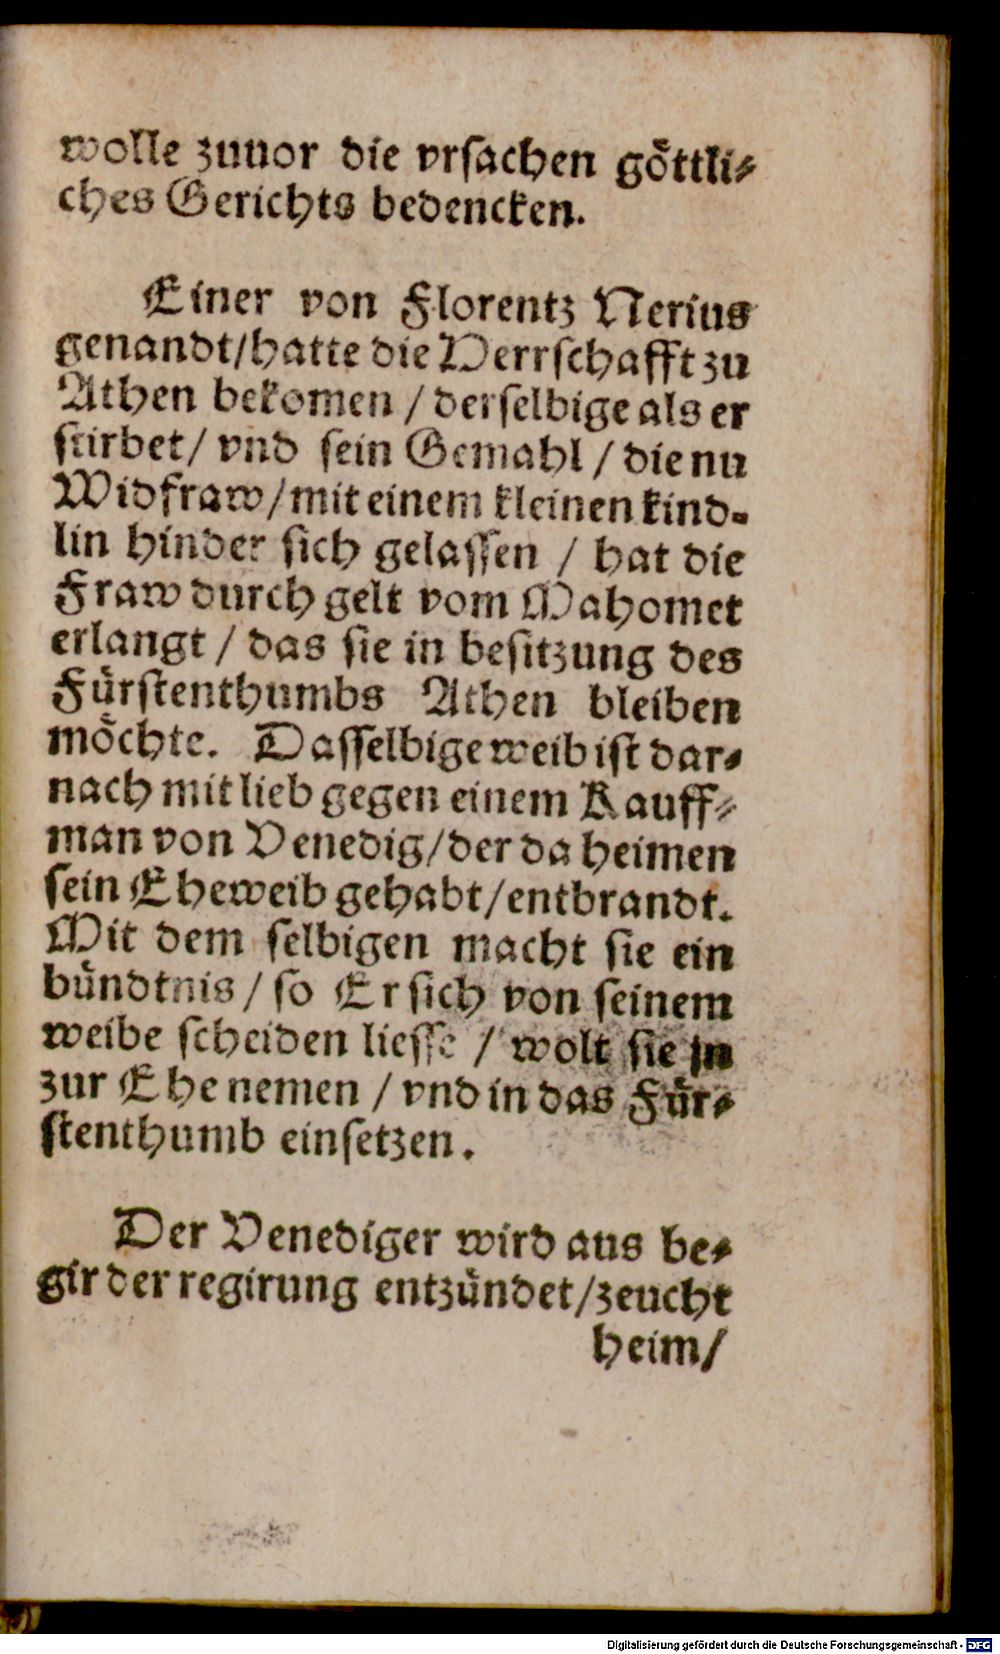 wolle zuuor die vrsachen göttli-
ches Gerichts bedencken.
Einer von Florentz Nerius
genandt/hatte die Herrschafft zu
Athen bekomen / derselbige als er
stirbet/ vnd sein Gemahl / die nu
Widfraw/mit einem kleinen kind-
lin hinder sich gelassen / hat die
Fraw durch gelt vom Mahomet
erlangt / das sie in besitzung des
Fürstenthumbs Athen bleiben
möchte. Dasselbige weib ist dar-
nach mit lieb gegen einem Kauff-
man von Venedig/der da heimen
sein Eheweib gehabt/entbrandt.
Mit dem selbigen macht sie ein
bündtnis / so Er sich von seinem
weibe scheiden liesse / wolt sie jn
zur Ehe nemen / vnd in das Für-
stenthumb einsetzen.
Der Venediger wird aus be-
gir der regirung entzündet/zeucht
heim/
Digitalisierung gefördert durch die Deutsche Forschungsgemeinschaft - DFG